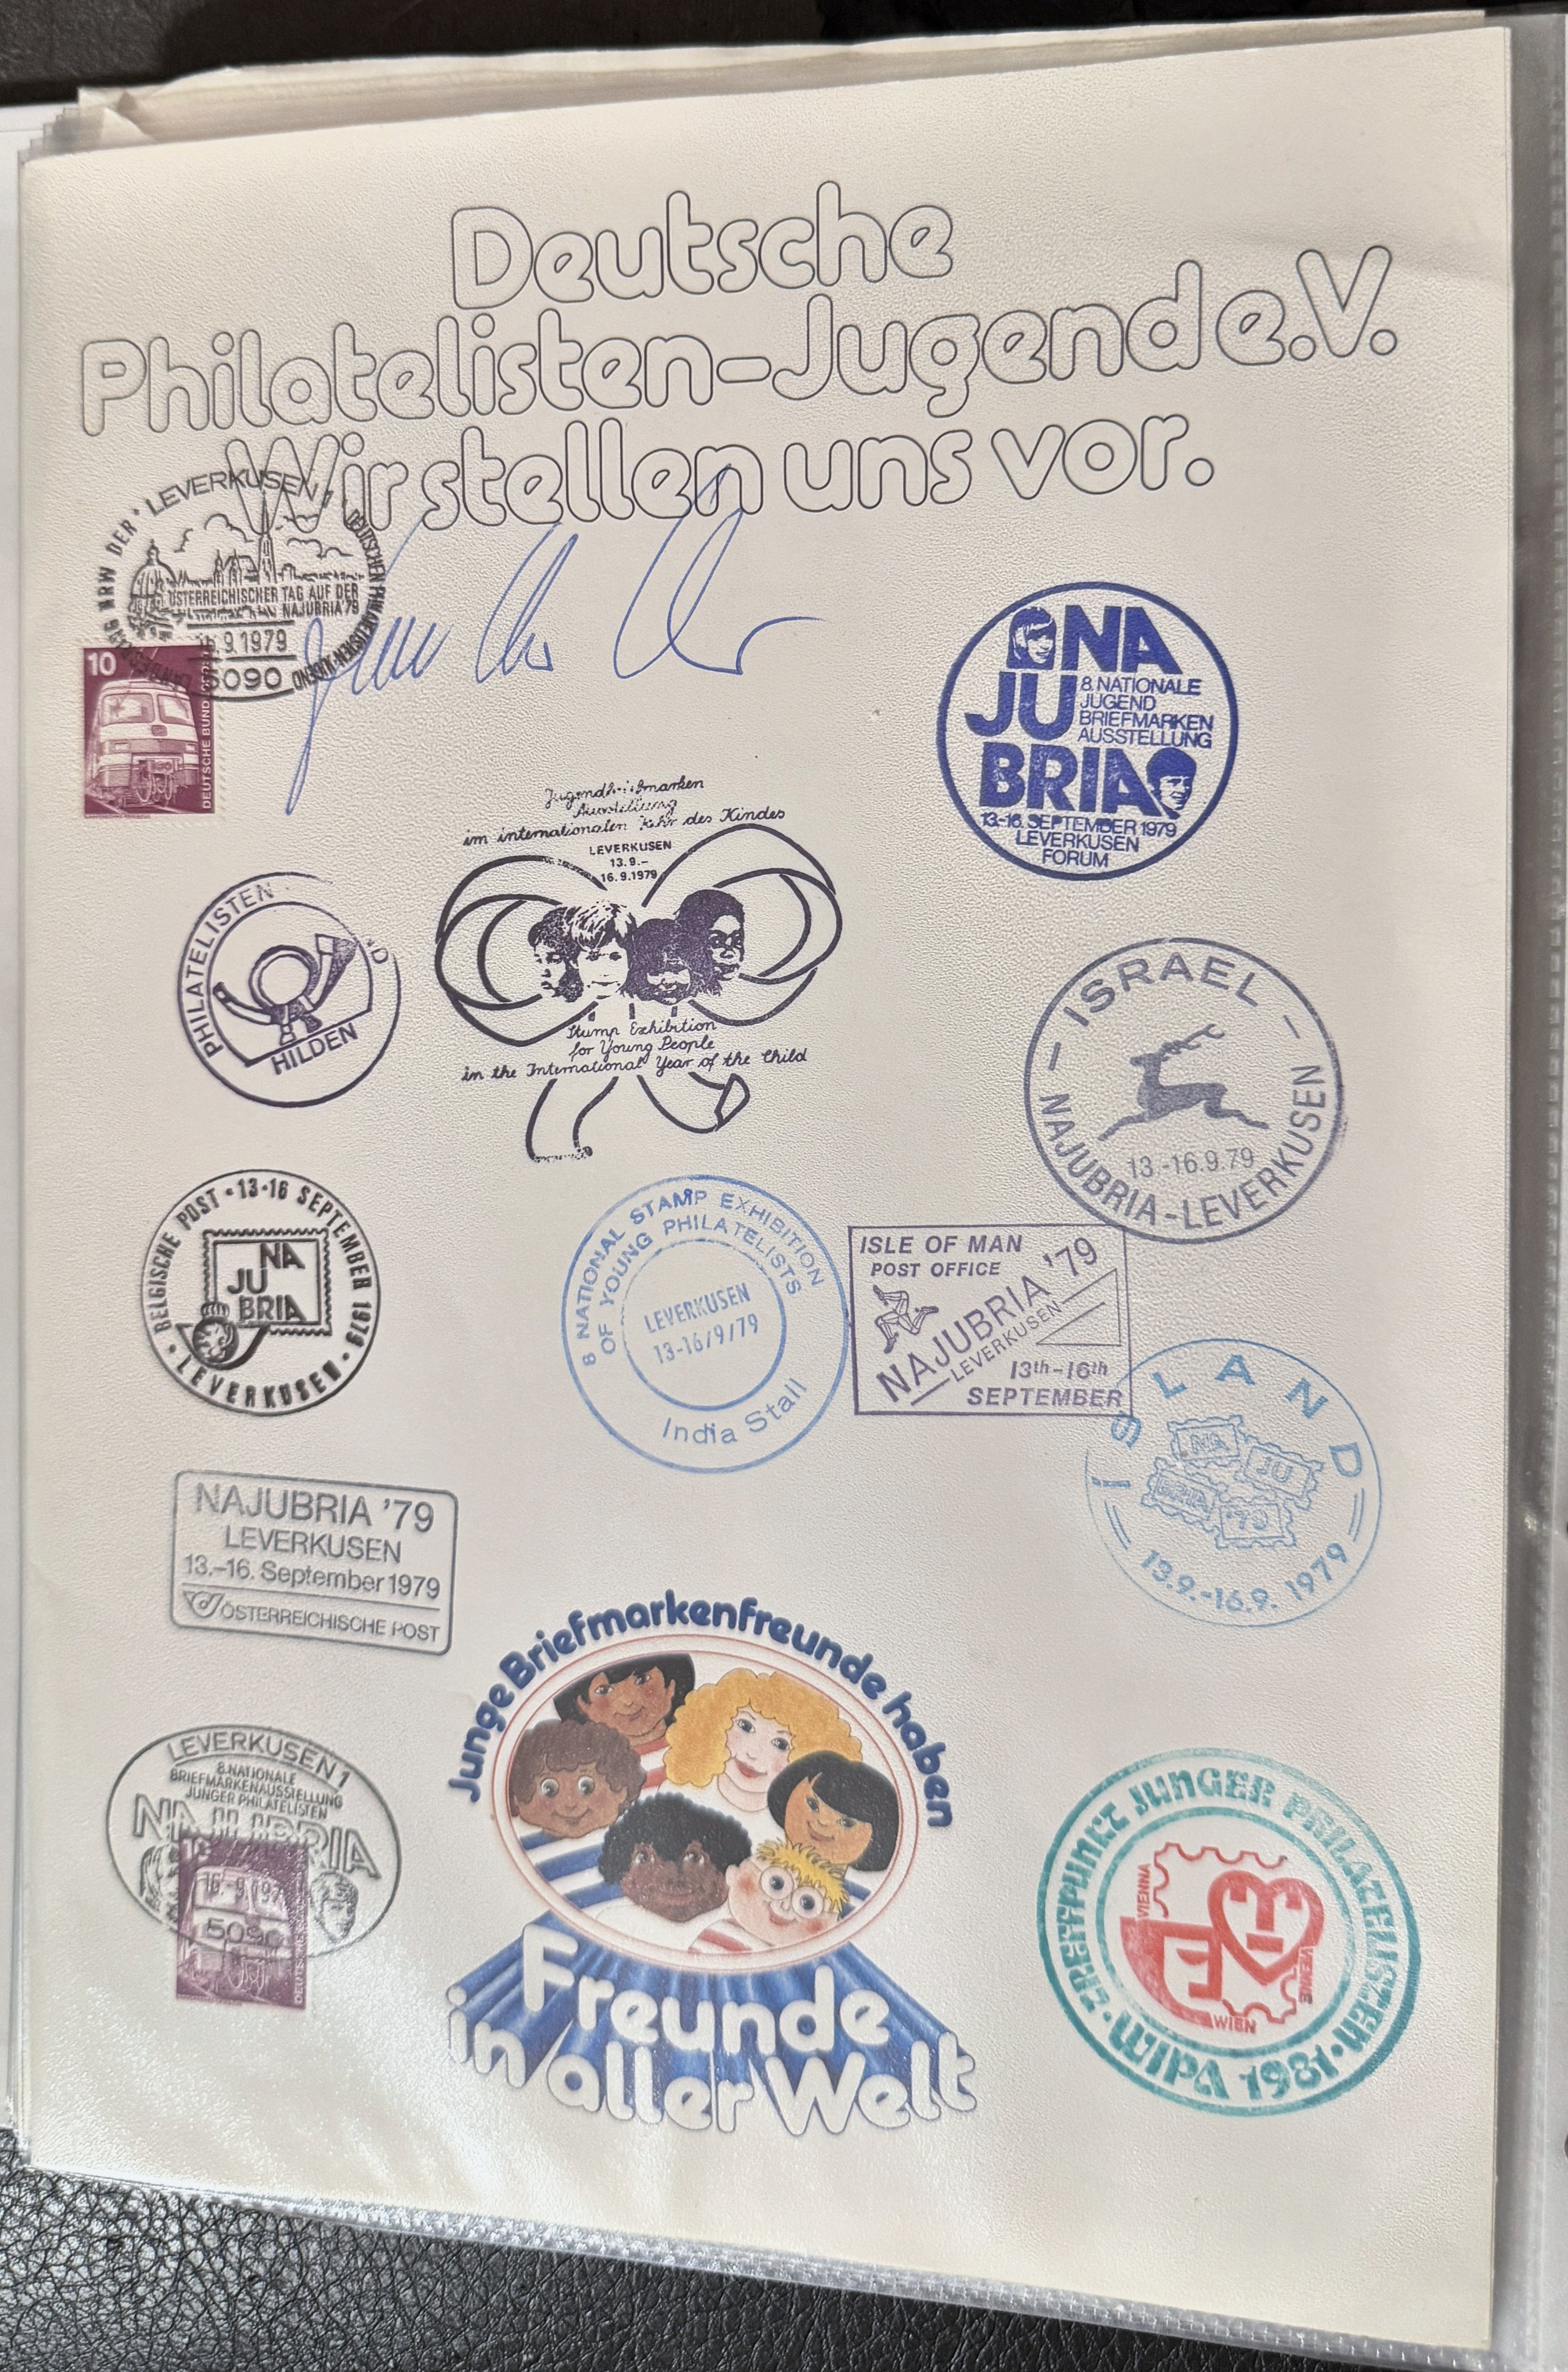 Deutsche
Philatelisten-Jugend e.V.
Wir stellen uns vor.
LEVERKUSEN 1
NRW DER DEUTSCHEN PHILATELISTEN-JUGEND
ÖSTERREICHISCHER TAG AUF DER
NAJUBRIA '79
9.1979
5090
10
DEUTSCHE BUND
NA
JU
BRIA
8. NATIONALE
JUGEND
BRIEFMARKEN
AUSSTELLUNG
13.-16. SEPTEMBER 1979
LEVERKUSEN
FORUM
Ausstellung
im internationalen Jahr des Kindes
LEVERKUSEN
13.9.-
16.9.1979
Stamp Exhibition
for Young People
in the International Year of the Child
PHILATELISTEN
HILDEN
- ISRAEL -
13.-16.9.79
NAJUBRIA-LEVERKUSEN
BELGISCHE POST • 13-16 SEPTEMBER 1979 •
NA
JU
BRIA
• LEVERKUSEN •
8 NATIONAL STAMP EXHIBITION
OF YOUNG PHILATELISTS
LEVERKUSEN
13-16/9/79
India Stall
ISLE OF MAN
POST OFFICE
NAJUBRIA '79
LEVERKUSEN
13th-16th
SEPTEMBER
ISLAND
NA
JU
BRIA
'79
13.9.-16.9. 1979
NAJUBRIA '79
LEVERKUSEN
13.-16. September 1979
ÖSTERREICHISCHE POST
Junge Briefmarkenfreunde haben
Freunde
in aller Welt
LEVERKUSEN 1
8. NATIONALE
BRIEFMARKENAUSSTELLUNG
JUNGER PHILATELISTEN
NAJUBRIA
10
5090
TREFFPUNKT JUNGER PHILATELISTEN
VIENNA
VIENNE
WIEN
• WIPA 1981 •